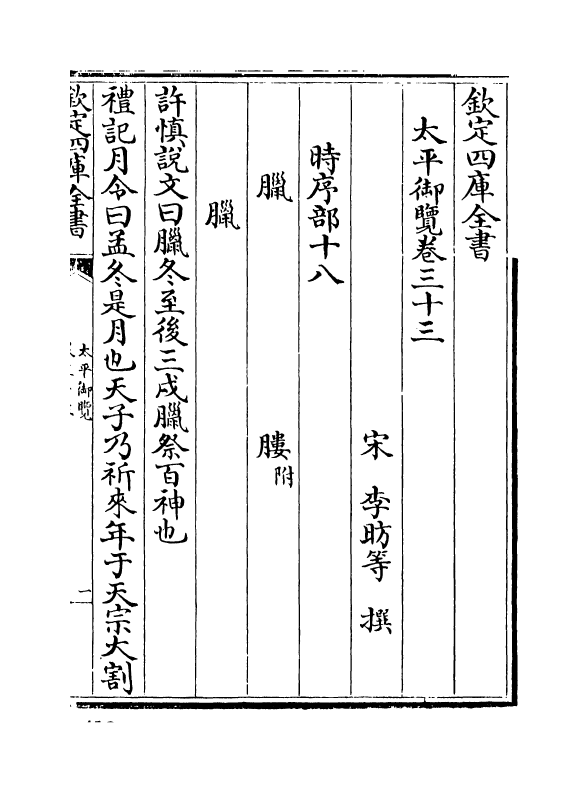 欽定四庫全書
太平御覽卷三十三
宋 李昉等 撰
時序部十八
臘 膢附
臘
許慎說文曰臘冬至後三戌臘祭百神也
禮記月令曰孟冬是月也天子乃祈來年于天宗大割
欽定四庫全書
太平御覽
一